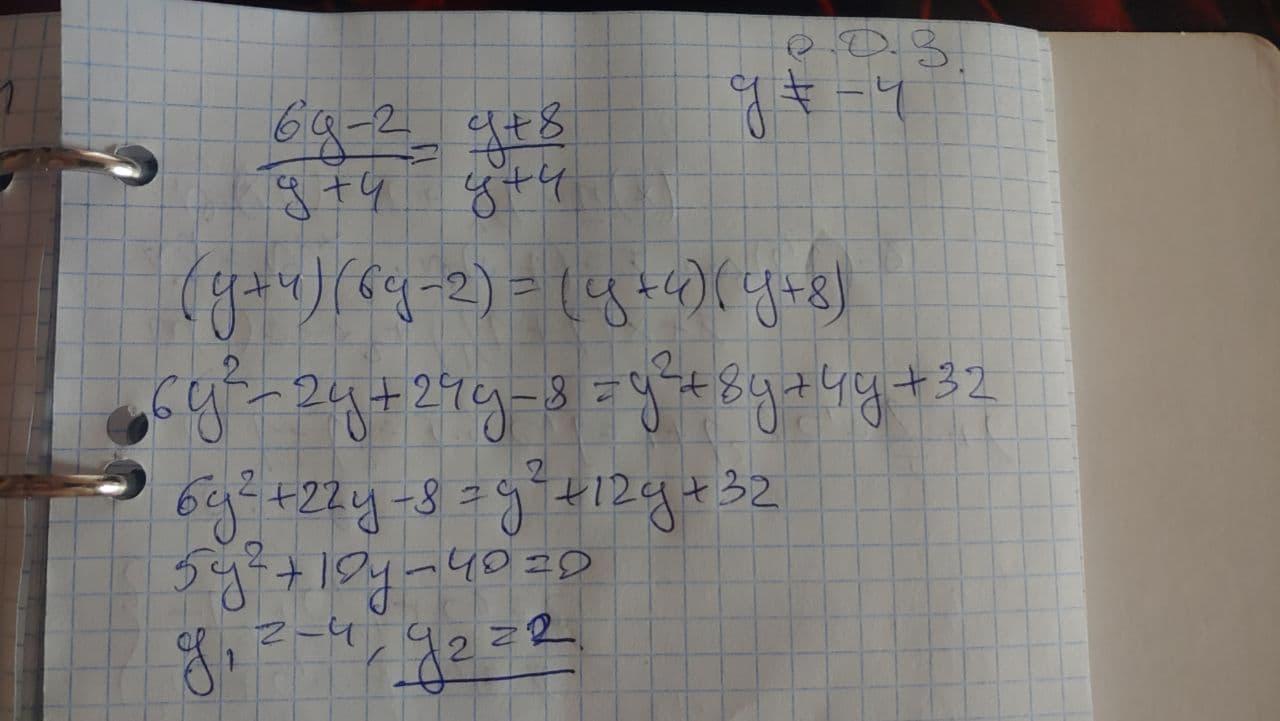 О.D.З.
y ≠ -4
6y-2/y+4 = y+8/y+4
(y+4)(6y-2)=(y+4)(y+8)
6y²-2y+24y-8=y²+8y+4y+32
6y²+22y-8=y²+12y+32
5y²+10y-40=0
y₁=-4, y₂=2